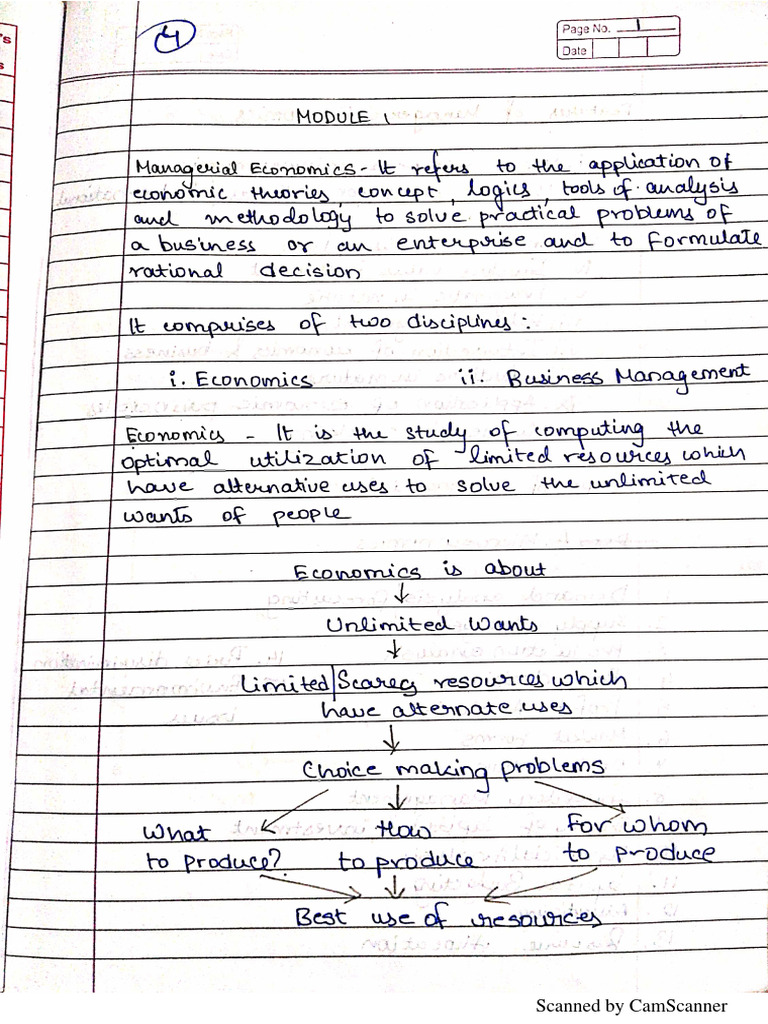 4
Page No. 1
Date
's
s
MODULE 1
Managerial Economics - It refers to the application of
economic theories, concept, logics, tools of analysis
and methodology to solve practical problems of
a business or an enterprise and to formulate
rational decision
It comprises of two disciplines :
i. Economics ii. Business Management
Economics - It is the study of computing the
optimal utilization of limited resources which
have alternative uses to solve the unlimited
wants of people
Economics is about
↓
Unlimited Wants
↓
Limited/Scarcg resources which
have alternate uses
↓
Choice making problems
What How For whom
to produce? to produce to produce
Best use of resources
Scanned by CamScanner